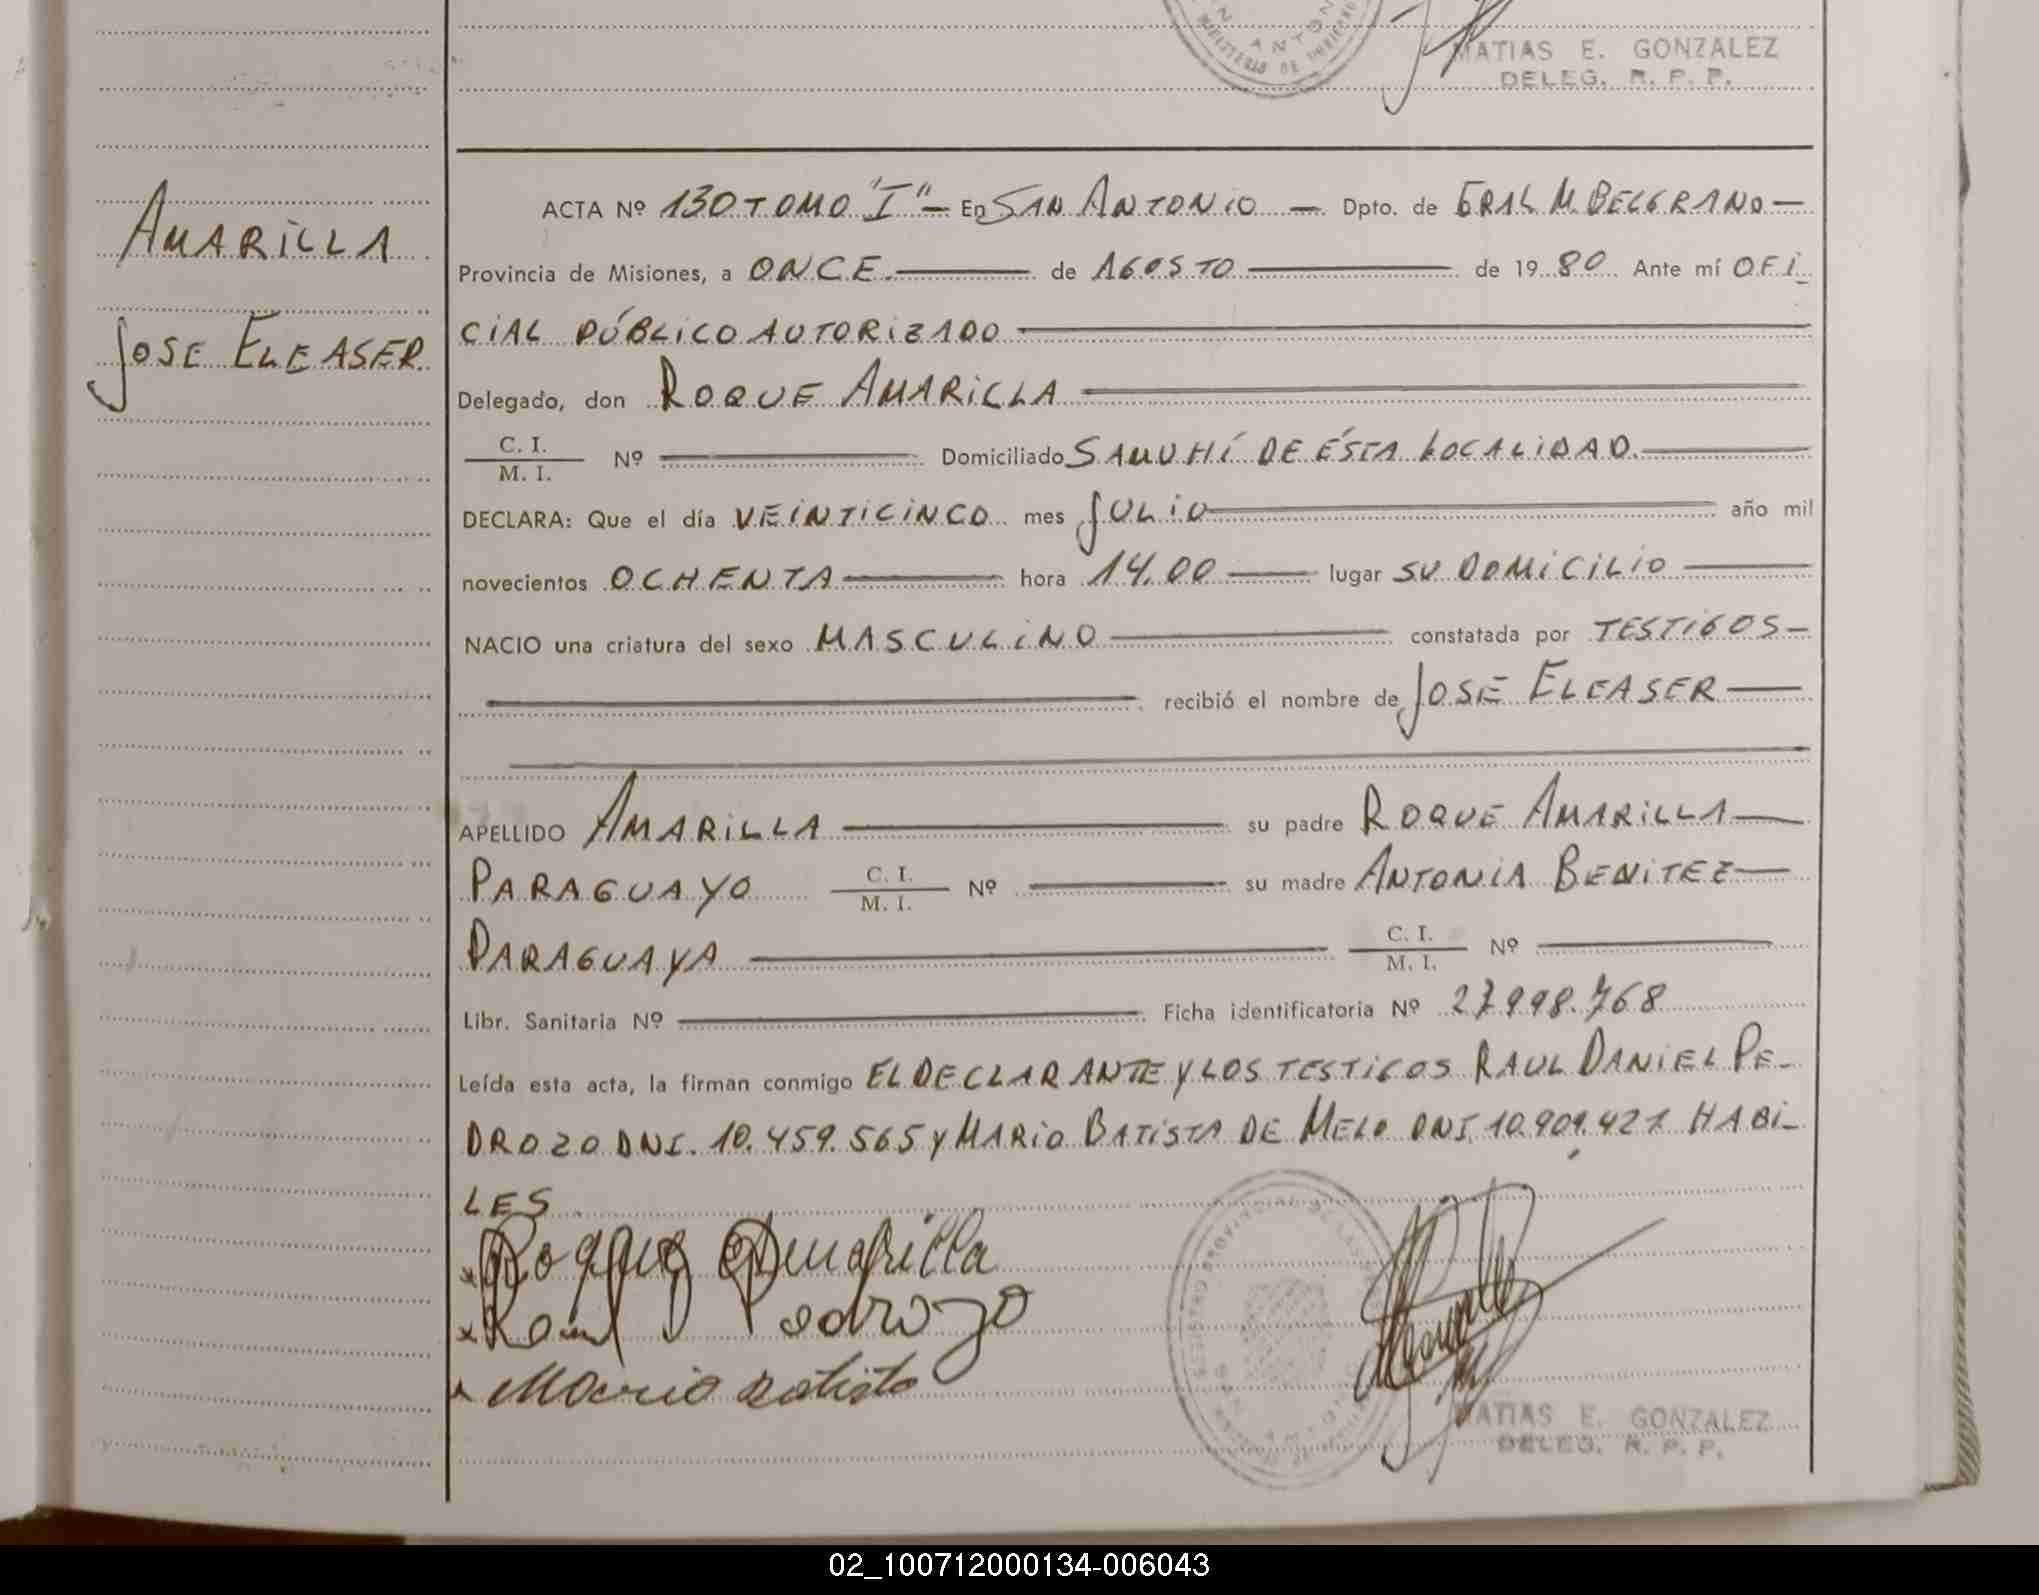 MATIAS E. GONZALEZ
DELEG. R. P. P.
AMARILLA
JOSE ELEASER
ACTA Nº 130 TOMO "I" — En SAN ANTONIO — Dpto. de GRAL M. BELGRANO —
Provincia de Misiones, a ONCE — de AGOSTO — de 1980 Ante mí OFI
CIAL PÚBLICO AUTORIZADO
Delegado, don ROQUE AMARILLA
C. I.
M. I. Nº — Domiciliado SAUUHÍ DE ÉSTA LOCALIDAD.
DECLARA: Que el día VEINTICINCO mes JULIO — año mil
novecientos OCHENTA — hora 14.00 — lugar SU DOMICILIO —
NACIO una criatura del sexo MASCULINO — constatada por TESTIGOS —
recibió el nombre de JOSÉ ELEASER —
APELLIDO AMARILLA — su padre ROQUE AMARILLA —
PARAGUAYO C. I. M. I. Nº — su madre ANTONIA BENITEZ —
PARAGUAYA — C. I. M. I. Nº —
Libr. Sanitaria Nº — Ficha identificatoria Nº 27.998.768
Leída esta acta, la firman conmigo EL DECLARANTE Y LOS TESTIGOS RAUL DANIEL PE-
DROZO DNI. 10.459.565 y MARIO BATISTA DE MELO DNI. 10.909.427 HABI-
LES
Roque Amarilla
Raul Pedrozo
Mario Batista
MATIAS E. GONZALEZ
DELEG. R. P. P.
02_100712000134-006043